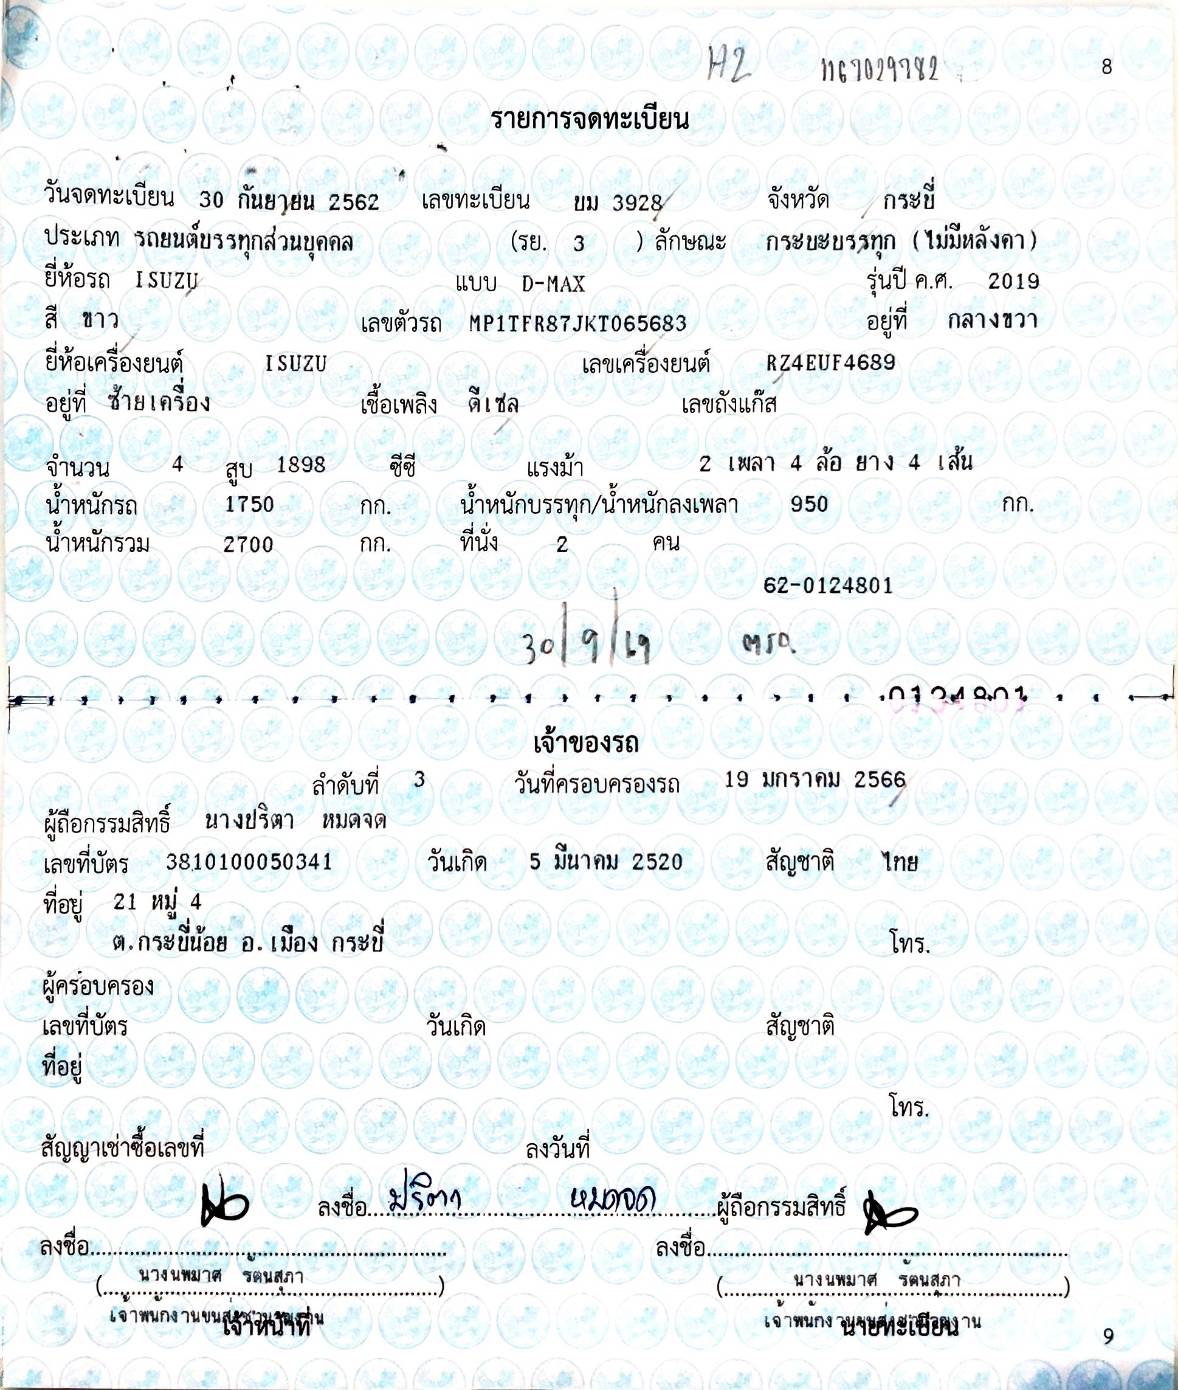 H2 1167029782 8
รายการจดทะเบียน
วันจดทะเบียน 30 กันยายน 2562 เลขทะเบียน บม 3928 จังหวัด กระบี่
ประเภท รถยนต์บรรทุกส่วนบุคคล (รย. 3 ) ลักษณะ กระบะบรรทุก (ไม่มีหลังคา)
ยี่ห้อรถ ISUZU แบบ D-MAX รุ่นปี ค.ศ. 2019
สี ขาว เลขตัวรถ MP1TFR87JKT065683 อยู่ที่ กลางขวา
ยี่ห้อเครื่องยนต์ ISUZU เลขเครื่องยนต์ RZ4EUF4689
อยู่ที่ ซ้ายเครื่อง เชื้อเพลิง ดีเซล เลขถังแก๊ส
จำนวน 4 สูบ 1898 ซีซี แรงม้า 2 เพลา 4 ล้อ ยาง 4 เส้น
น้ำหนักรถ 1750 กก. น้ำหนักบรรทุก/น้ำหนักลงเพลา 950 กก.
น้ำหนักรวม 2700 กก. ที่นั่ง 2 คน
62-0124801
30/9/69
0124801
เจ้าของรถ
ลำดับที่ 3 วันที่ครอบครองรถ 19 มกราคม 2566
ผู้ถือกรรมสิทธิ์ นางปริตา หมดจด
เลขที่บัตร 3810100050341 วันเกิด 5 มีนาคม 2520 สัญชาติ ไทย
ที่อยู่ 21 หมู่ 4
ต.กระบี่น้อย อ.เมือง กระบี่ โทร.
ผู้ครอบครอง
เลขที่บัตร วันเกิด สัญชาติ
ที่อยู่
โทร.
สัญญาเช่าซื้อเลขที่ ลงวันที่
ลงชื่อ ปริตา หมดจด ผู้ถือกรรมสิทธิ์
ลงชื่อ ลงชื่อ
(นางนพมาศ รัตนสุภา) (นางนพมาศ รัตนสุภา)
เจ้าพนักงานขนส่งชำนาญงาน เจ้าพนักงานขนส่งชำนาญงาน
เจ้าหน้าที่ นายทะเบียน
9